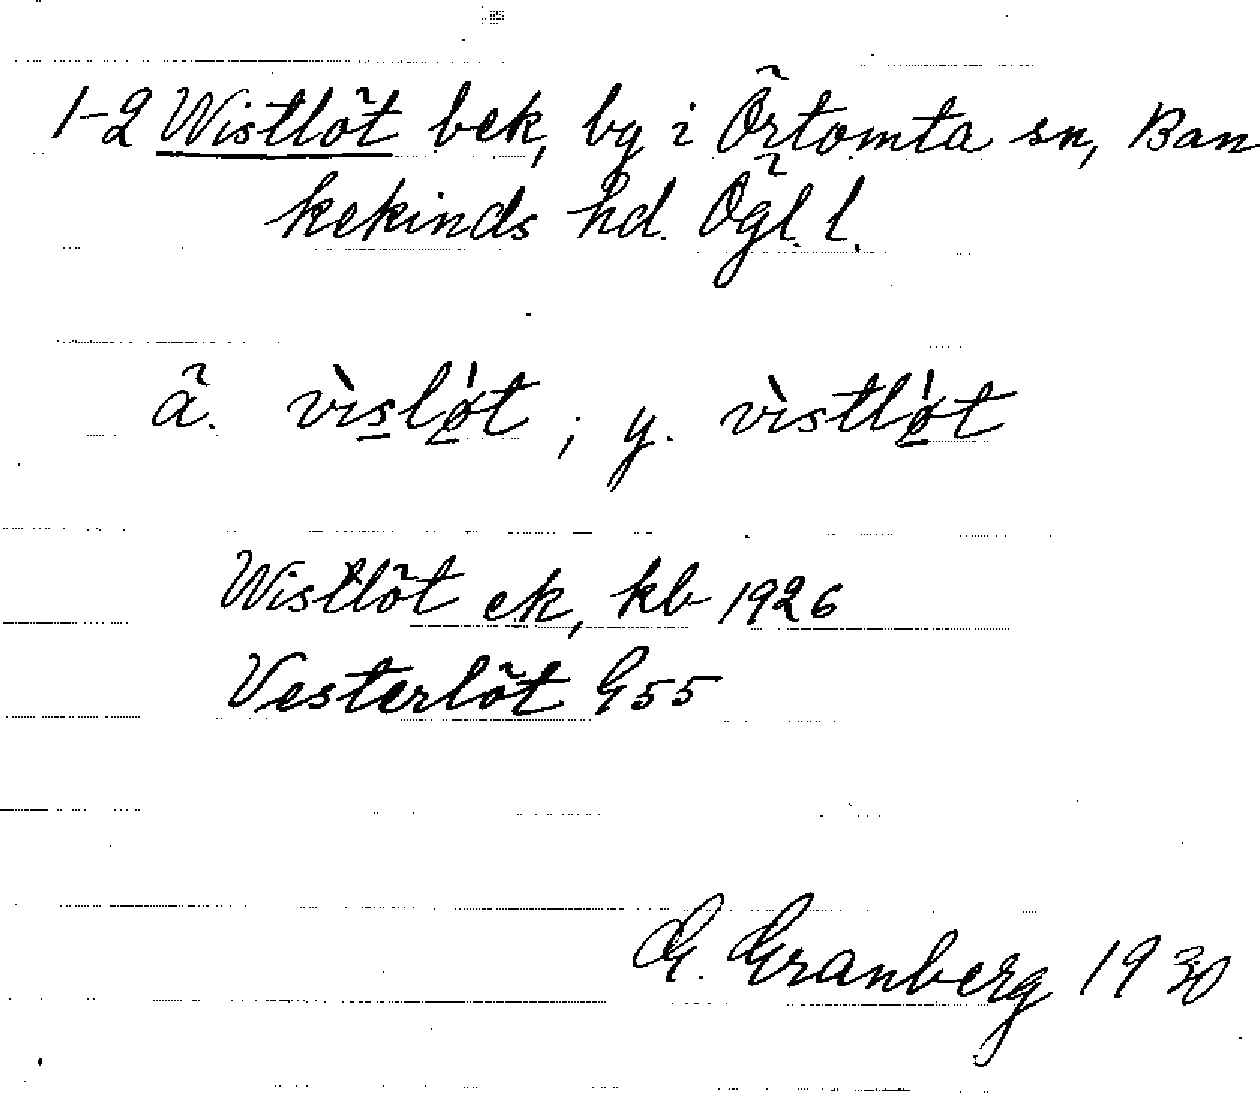 1-2 Wistlöt bek, by i Örtomta sn, Ban
kekinds hd. Ögl. l.
ä. vìsløt ; y. vìstløt
Wistlöt ek, kb 1926
Vesterlöt G55
G. Granberg 1930